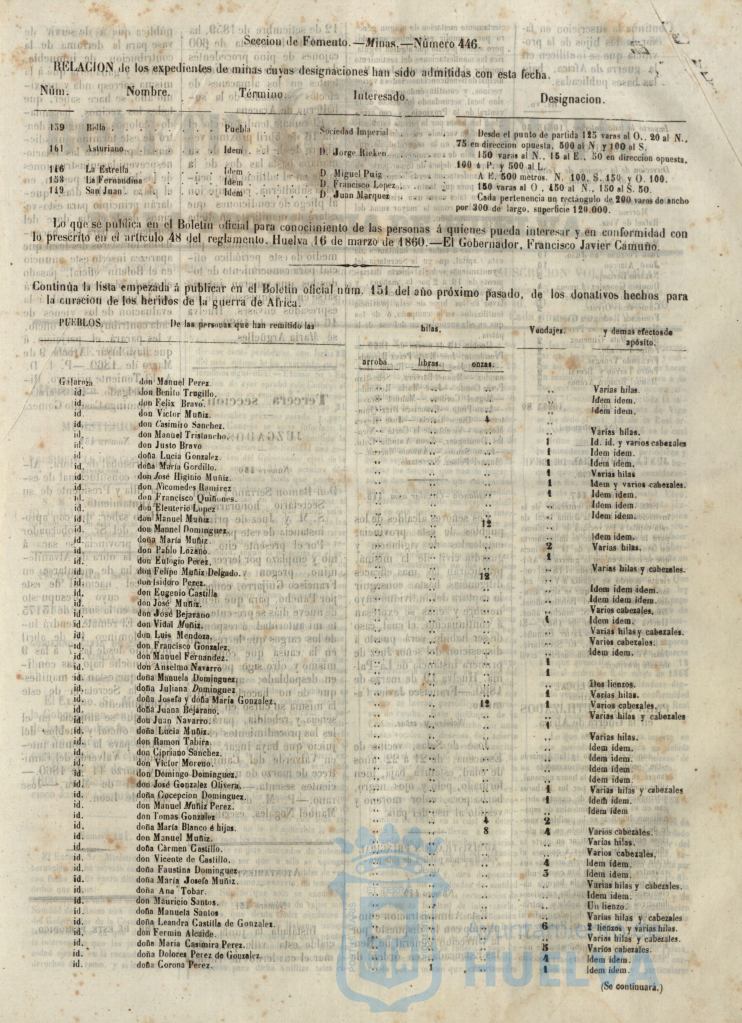 Seccion de Fomento.—Minas.—Número 446.
RELACION de los expedientes de minas cuyas designaciones han sido admitidas con esta fecha.
Núm. Nombre. Término. Interesado. Designacion.
159 Bella Puebla Sociedad Imperial Desde el punto de partida 125 varas al O., 20 al N.,
75 en direccion opuesta, 500 al N. y 100 al S.
161 Asturiano. Idem D. Jorge Rieken. 150 varas al N., 15 al E., 50 en direccion opuesta,
100 á P. y 500 al L.
146 La Estrella Idem D. Miguel Puiz A E. 500 metros. N. 100, S. 150, y O. 100.
158 La Fernandina Idem D. Francisco Lopez 150 varas al O, 450 al N., 150 al S. 50.
149 San Juan Idem D. Juan Marquez Cada pertenencia un rectángulo de 200 varas de ancho
por 300 de largo, superficie 120.000.
Lo que se publica en el Boletin oficial para conocimiento de las personas á quienes pueda interesar y en conformidad con
lo prescrito en el artículo 48 del reglamento. Huelva 16 de marzo de 1860.—El Gobernador, Francisco Javier Camuño.
Continúa la lista empezada á publicar en el Boletin oficial núm. 151 del año próximo pasado, de los donativos hechos para
la curacion de los heridos de la guerra de Africa.
PUEBLOS. De las personas que han remitido las hilas. Vendajes. y demas efectos de
apósito.
arroba. libras. onzas.
Galaroza don Manuel Perez. Varias hilas.
id. don Benito Trugillo. Idem idem.
id. don Felix Bravo. Idem idem.
id. don Victor Muñiz. 4
id. don Casimiro Sanchez. Varias hilas.
id. don Manuel Tristancho. 1 Id. id. y varios cabezales
id. don Justo Bravo 1 Idem idem.
id. doña Lucia Gonzalez. 1 Idem idem.
id. doña María Gordillo. 1 Varias hilas
id. don José Higinio Muñiz. 1 Idem y varios cabezales.
id. don Nicomedes Ramirez 1 Idem idem.
id. don Francisco Quiñones. Idem idem.
id. don Eleuterio Lopez Idem idem.
id. don Manuel Muñiz 12
id. don Manuel Dominguez. Idem idem.
id. doña María Muñiz 2 Varias hilas.
id. don Pablo Lozano. 1
id. don Eulogio Perez. Varias hilas y cabezales.
id. don Felipe Muñiz Delgado. 12
id. don Isidoro Perez. Idem idem idem.
id. don Eugenio Castilla Idem idem idem.
id. don José Muñiz. Varios cabezales,
id. don José Bejarano 1 Idem idem.
id. don Vidal Muñiz. Varias hilas y cabezales.
id. don Luis Mendoza. Varios cabezales.
id. don Francisco Gonzalez. Idem idem.
id. don Manuel Fernandez. 1
id. don Anselmo Navarro 1
id. doña Manuela Dominguez. Dos lienzos.
id. doña Juliana Dominguez 1 Varias hilas.
id. doña Josefa y doña María Gonzalez. 12 1 Varios cabezales.
id. doña Juana Bejarano. Varias hilas y cabezales
id. don Juan Navarro. 1
id. doña Lucia Muñiz. Varias hilas.
id. don Ramon Tabira. Idem idem.
id. don Cipriano Sanchez. Idem idem.
id. don Victor Moreno. Idem idem.
id. don Domingo Dominguez. Idem idem.
id. don José Gonzalez Olivera. 1 Varias hilas y cabezales
id. doña Concepcion Dominguez. 1 Idem idem.
id. don Manuel Muñiz Perez. Idem idem
id. don Tomas Gonzalez 4 2
id. doña María Blanco é hijas. 8 4 Varios cabezales.
id. don Manuel Muñiz. Varias hilas.
id. doña Cármen Castillo. Varios cabezales,
id. don Vicente de Castillo. 4 Idem idem.
id. doña Faustina Dominguez 3 Idem idem.
id. doña María Josefa Muñiz. Varias hilas y cabezales.
id. doña Ana Tobar. Idem idem.
id. don Mauricio Santos. Un lienzo.
id. doña Manuela Santos Varias hilas y cabezales
id. doña Leandra Castilla de Gonzalez. 6 2 lienzos y varias hilas.
id. don Fermin Alcaide. Varias hilas y cabezales.
id. doña María Casimira Perez. 5 Varios cabezales.
id. doña Dolores Perez de Gonzalez. 4 Idem idem.
id. doña Corona Perez. 1 1 Idem idem.
(Se continuará.)
Ayuntamiento de
HUELVA